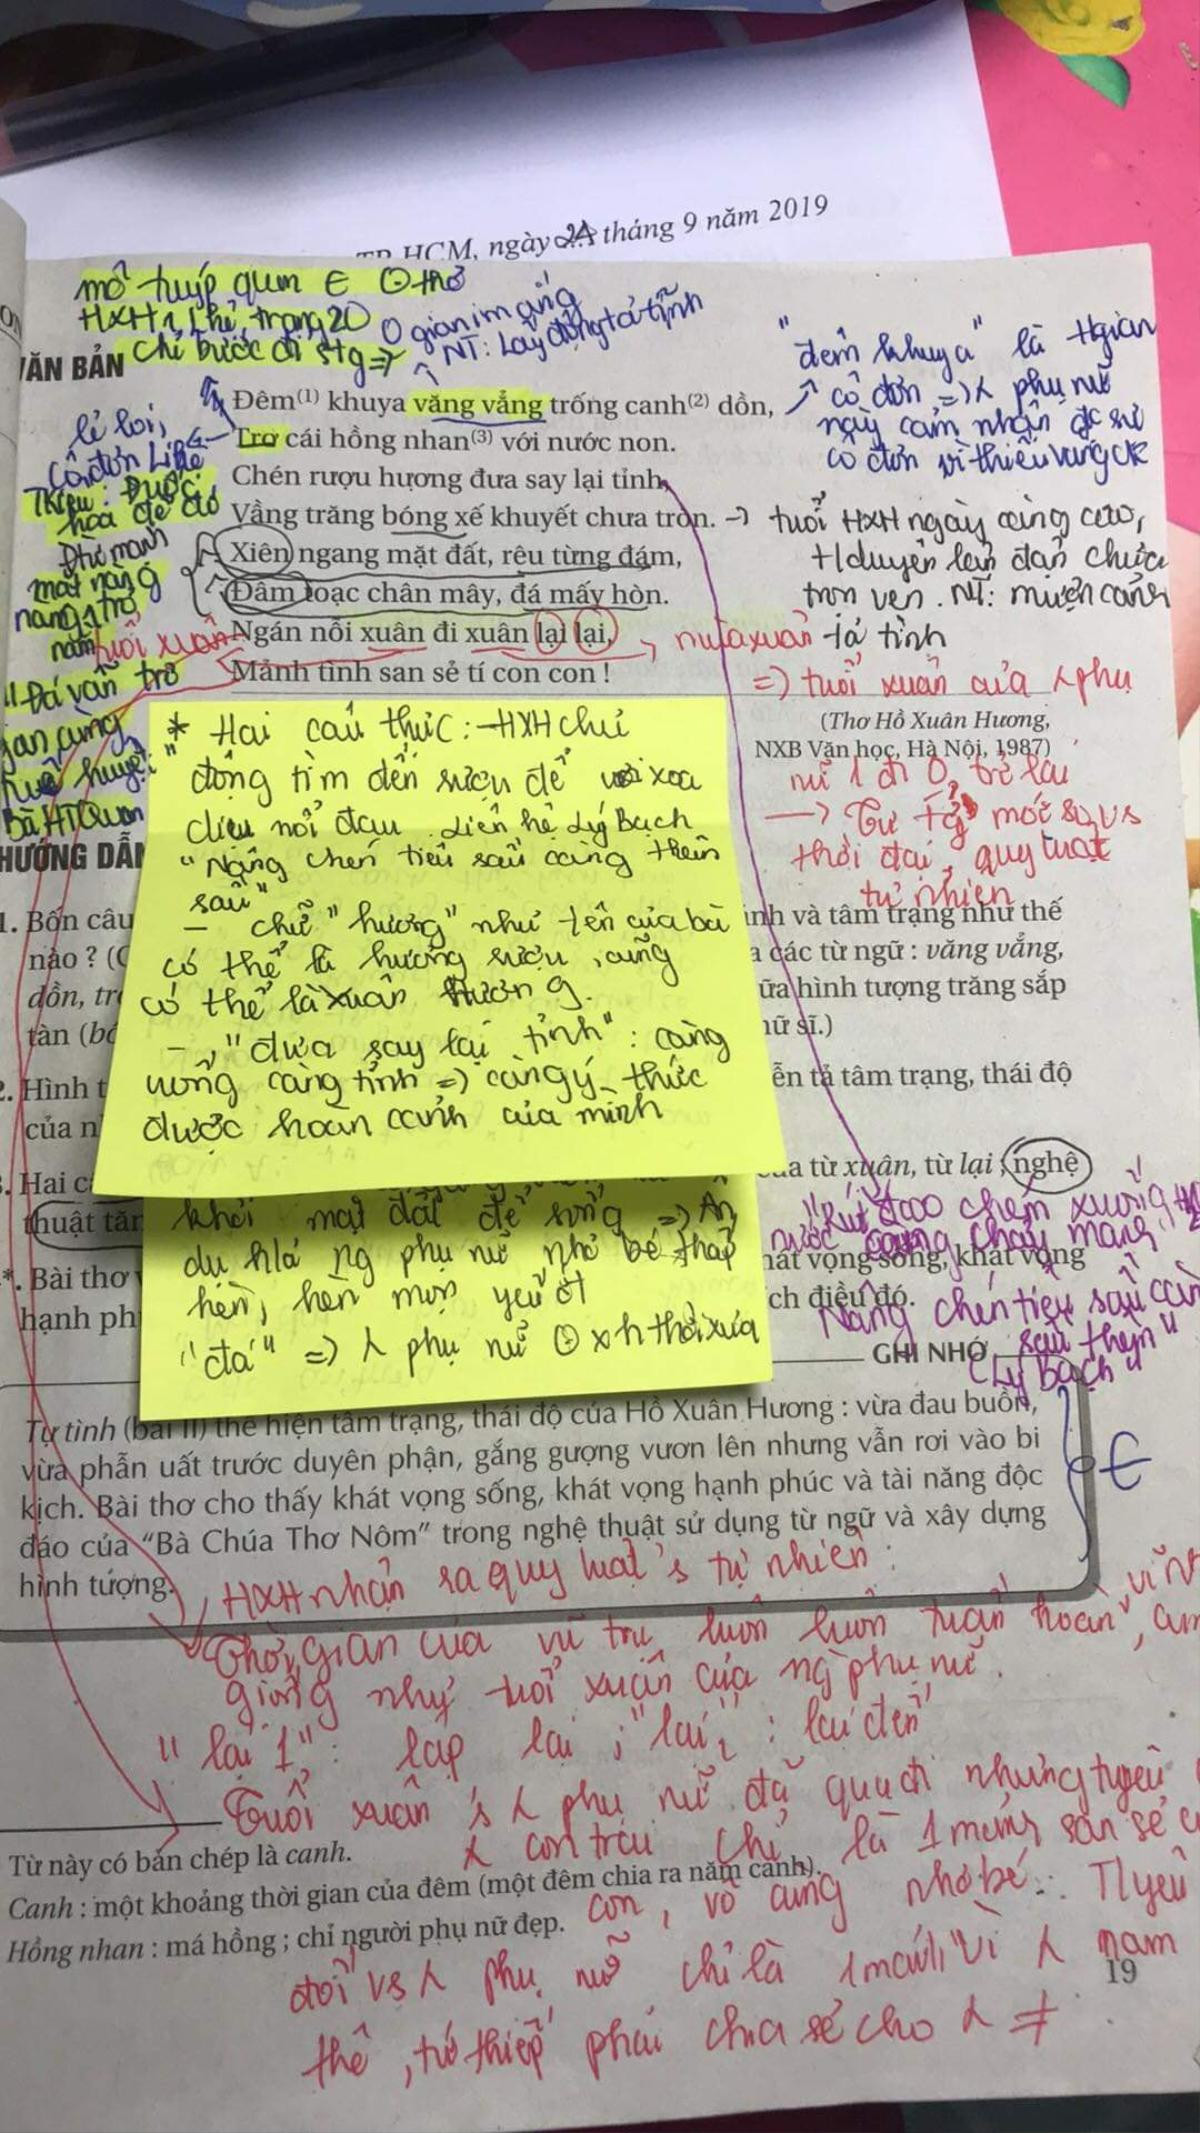 HCM, ngày 24 tháng 9 năm 2019
mô tuýp quen € thơ
HXH, Lhệ, trang 20
chỉ bước đi
NT: Lấy động tả tĩnh
VĂN BẢN
Đêm(1) khuya văng vẳng trống canh(2) dồn,
Trơ cái hồng nhan(3) với nước non.
Chén rượu hương đưa say lại tỉnh,
Vầng trăng bóng xế khuyết chưa tròn.
Xiên ngang mặt đất, rêu từng đám,
Đâm toạc chân mây, đá mấy hòn.
Ngán nỗi xuân đi xuân lại lại,
Mảnh tình san sẻ tí con con !
"đêm khuya" là tgian
cô đơn => phụ nữ
này cảm nhận đc sự
cô đơn vì thiếu vắng CK
-> tuổi HXH ngày càng cao,
duyên lận đận chưa
trọn vẹn. NT: mượn cảnh
tả tình
lẻ loi,
cô đơn
Kiều: Đuốc
hoa để đó
mặc nàng
nằm trơ
tuổi xuân
Đá vẫn trơ
gan cùng
Bà HTQuan
mùa xuân
=> tuổi xuân của phụ
nữ 1 đi 0 trở lại
(Thơ Hồ Xuân Hương,
NXB Văn học, Hà Nội, 1987)
thời đại, quy luật
tự nhiên
* Hai câu thực: - HXH chủ
động tìm đến rượu để xoa
dịu nỗi đau. Liên hệ Lý Bạch
"Nâng chén tiêu sầu càng thêm
sầu"
- chữ "hương" như tên của bà
có thể là hương rượu, cũng
có thể là xuân Hương.
- "đưa say lại tỉnh": càng
uống càng tỉnh => càng ý thức
được hoàn cảnh của mình
khỏi mặt đất để sống => Ẩn
dụ h/a ng phụ nữ nhỏ bé, thấp
hèn, hèn mọn yếu ớt
"đá" => phụ nữ xh thời xưa
HƯỚNG DẪN
1. Bốn câu
nh và tâm trạng như thế
nào ? (
a các từ ngữ : văng vẳng,
dồn, tr
ữa hình tượng trăng sắp
tàn (bó
nữ sĩ.)
2. Hình t
ễn tả tâm trạng, thái độ
của n
3. Hai c
a từ xuân, từ lại ; nghệ
thuật tăn
*. Bài thơ
hát vọng sống, khát vọng
hạnh ph
ch điều đó.
"Rút dao chém xuống
nước càng chảy mạnh
Nâng chén tiêu sầu càng
sầu thêm"
Lý Bạch
GHI NHỚ
Tự tình (bài II) thể hiện tâm trạng, thái độ của Hồ Xuân Hương : vừa đau buồn,
vừa phẫn uất trước duyên phận, gắng gượng vươn lên nhưng vẫn rơi vào bi
kịch. Bài thơ cho thấy khát vọng sống, khát vọng hạnh phúc và tài năng độc
đáo của "Bà Chúa Thơ Nôm" trong nghệ thuật sử dụng từ ngữ và xây dựng
hình tượng.
HXH nhận ra quy luật 's tự nhiên:
Thời gian của vũ trụ luôn luôn tuần hoàn,
giống như tuổi xuân của ng phụ nữ.
"lại 1": lặp lại ; "lại 2": lại đến
Tuổi xuân 's phụ nữ đã qua đi nhưng
con trai chỉ là 1 mảnh san sẻ
con, vô cùng nhỏ bé. Tyêu
đối vs phụ nữ chỉ là 1 mảnh vì nam
thê, tứ thiếp phải chia sẻ cho ≠
Từ này có bản chép là canh.
Canh : một khoảng thời gian của đêm (một đêm chia ra năm canh).
Hồng nhan : má hồng ; chỉ người phụ nữ đẹp.
19